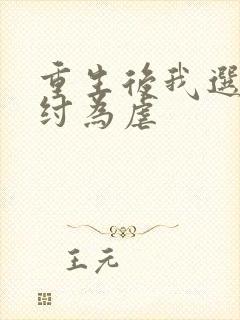 重生後我選
紂為虐
王元